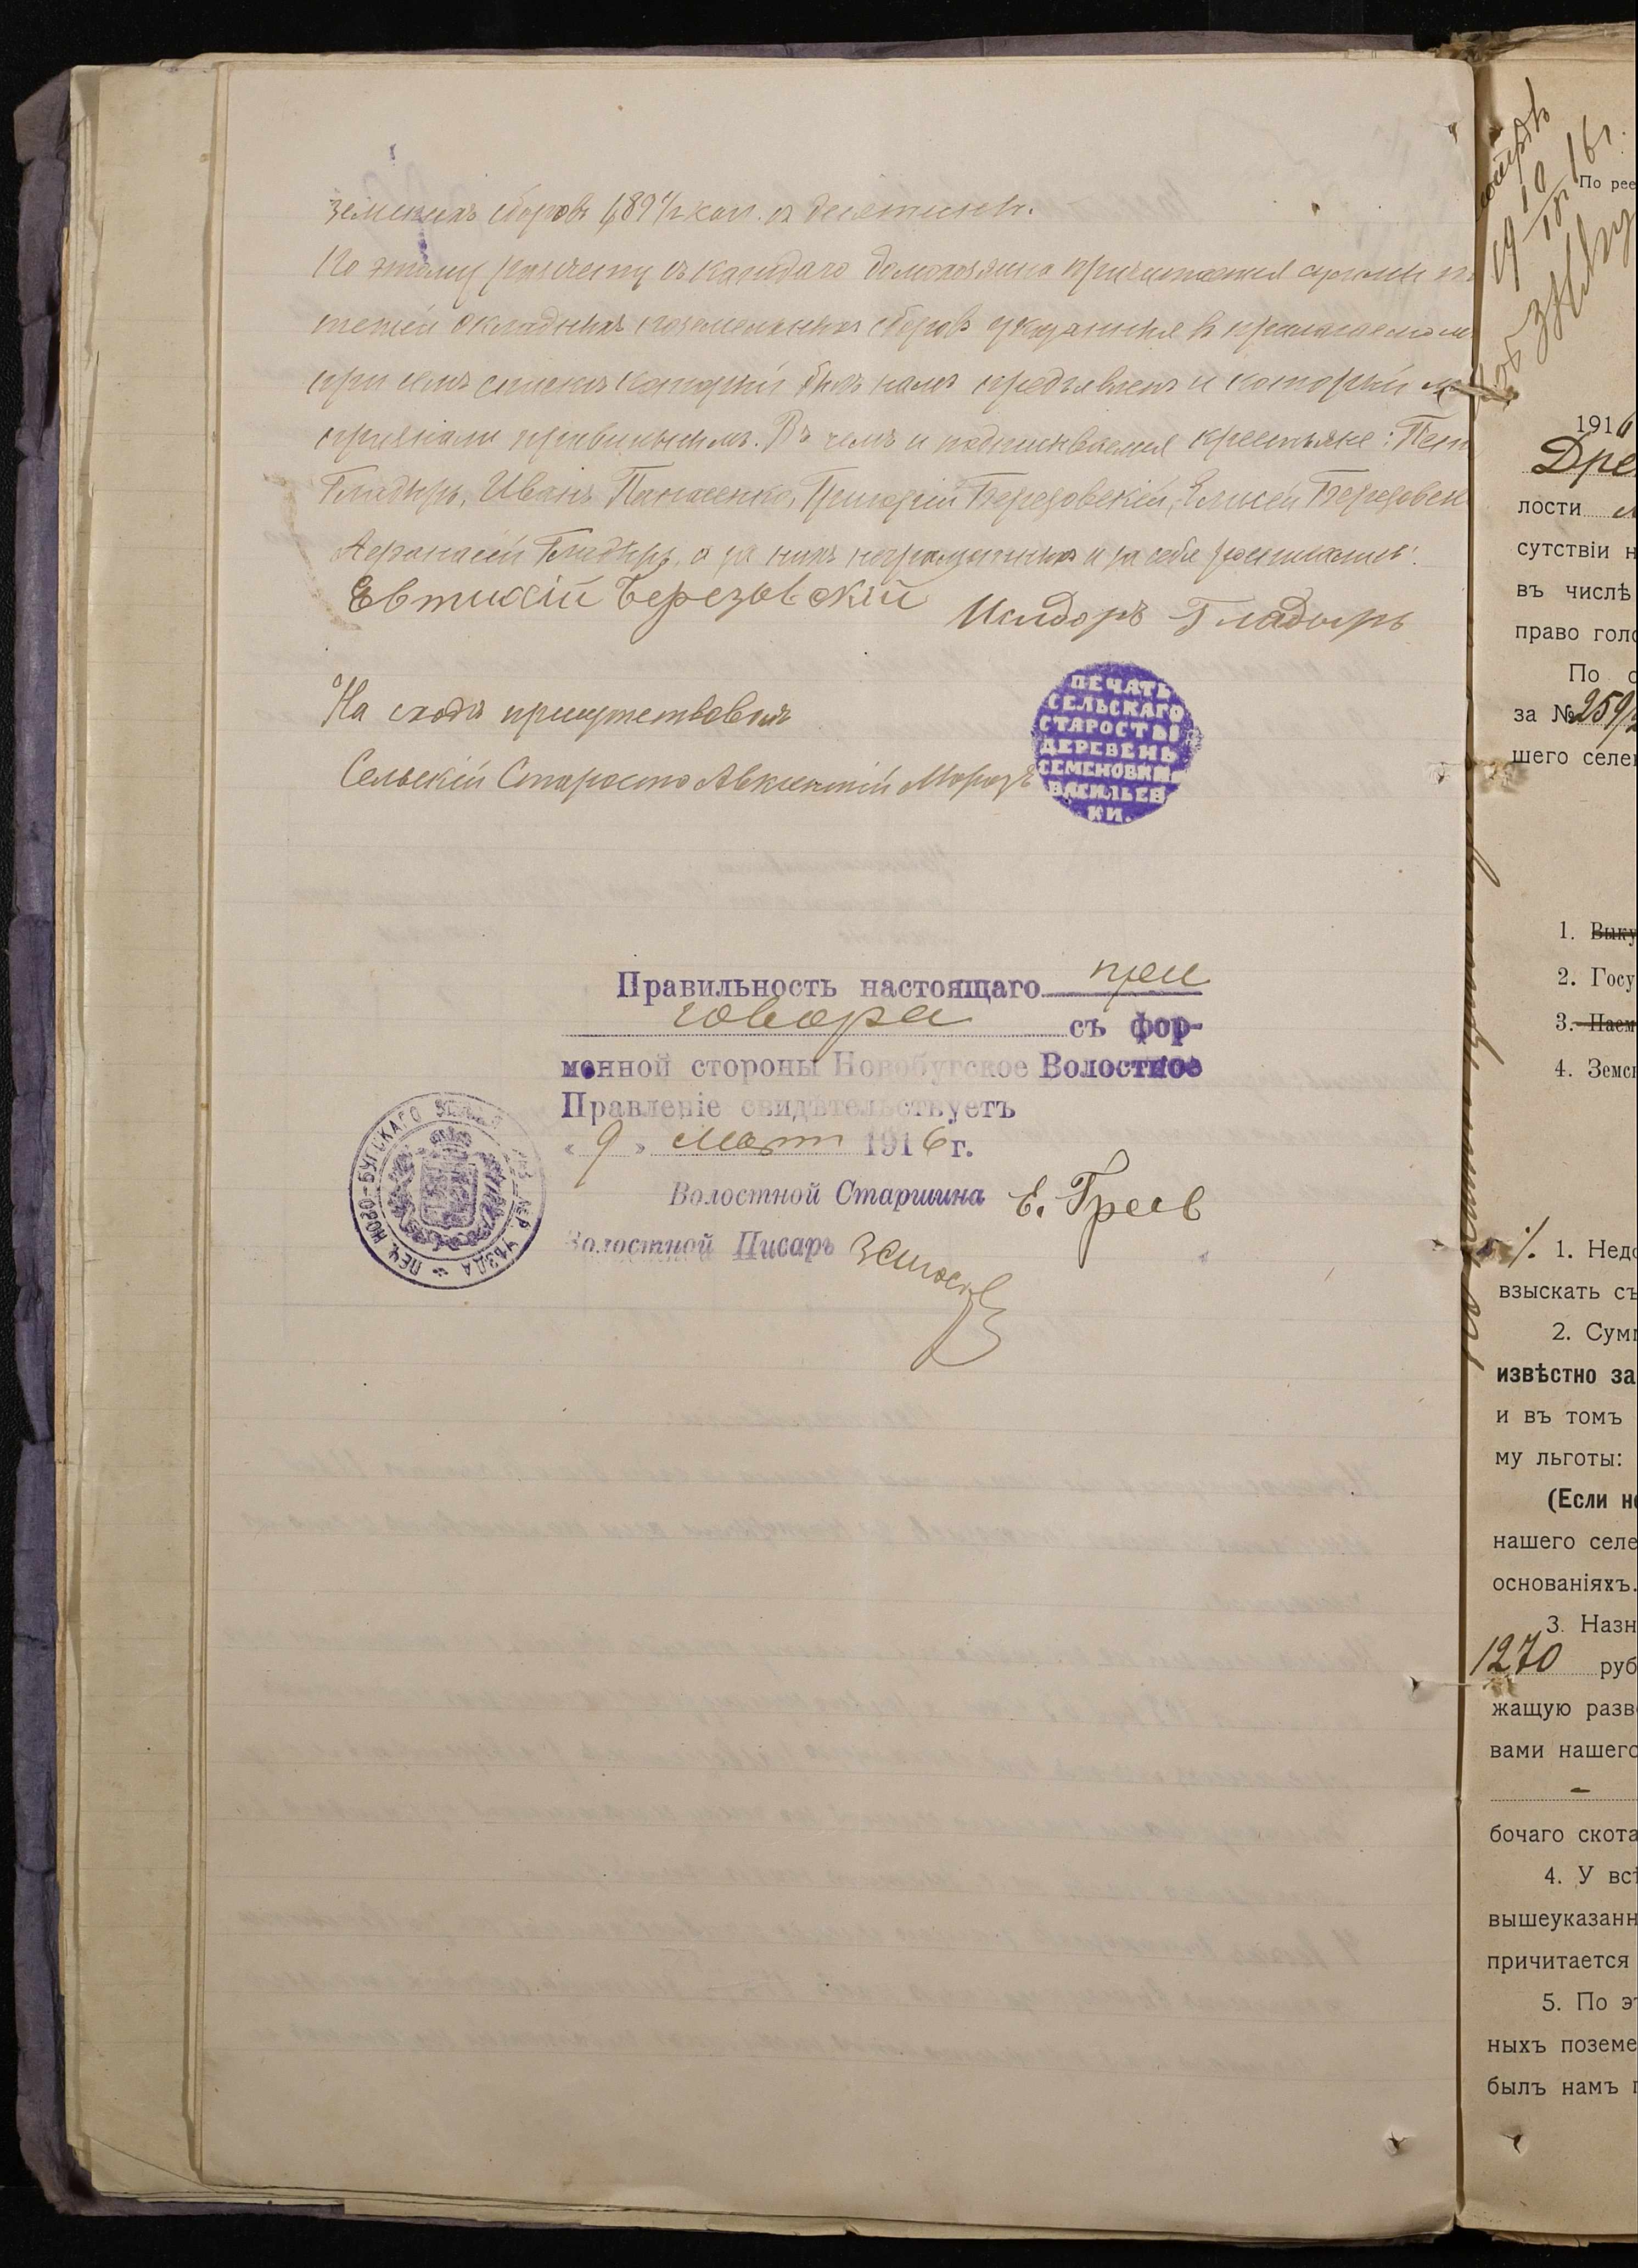 земскихъ сборовъ 1,89 1/2 коп. съ десятины.
По этому расчету съ каждаго домохозяина причитается суммы
окладныхъ поземельныхъ сборовъ указанныя въ прилагаемомъ
при семъ списке который былъ намъ предъявленъ и который
признали правильнымъ. Въ чемъ и подписываемся крестьяне: Петръ
Гладырь, Иванъ Панасенко, Григорій Березовскій, Елисей Березовск
Афанасій Гладырь, а за нихъ неграмотныхъ и за себя росписались:
Евтихій Березовскій Исидоръ Гладырь
На сходе присутствовалъ
Сельскій Староста Авксентій Морозъ
ПЕЧАТЬ
СЕЛЬСКАГО
СТАРОСТЫ
ДЕРЕВЕНЬ
СЕМЕНОВКИ
ВАСИЛЬЕВ
КИ.
Правильность настоящаго при
говора съ фор-
менной стороны Новобугское Волостное
Правленіе свидѣтельствуетъ
« 9 » Март 1916 г.
Волостной Старшина Е. Греев
Волостной Писарь
ПЕЧ. НОВО-БУГСКАГО ХЕР. УѢЗДА
По рее
1916
Дре
лости
сутствіи н
въ числѣ
право голо
По с
за № 259/
шего селен
1. Выку
2. Госу
3. Наем
4. Земск
1. Недо
взыскать съ
2. Сумм
извѣстно за
и въ томъ
му льготы:
(Если не
нашего селе
основаніяхъ.
3. Назн
1270 руб
жащую разв
вами нашего
бочаго скота
4. У всѣ
вышеуказанн
причитается
5. По эт
ныхъ поземе
былъ намъ п